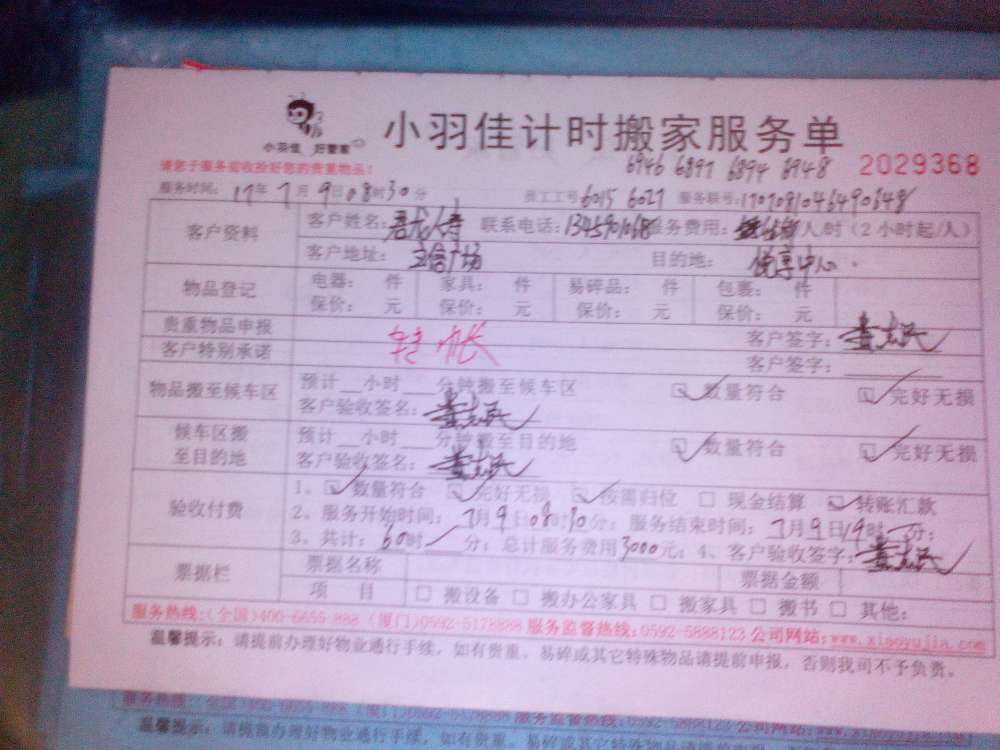 小羽佳计时搬家服务单
小羽佳 好管家
6946 6897 6894 8948 2029368
请您于服务前收捡好您的贵重物品!
服务时间: 17年7月9日08时30分 员工工号6015 6027 服务联号:
客户资料 客户姓名:君龙人寿 联系电话: 服务费用: 人/时(2小时起/人)
客户地址: 宝信广场 目的地: 悦享中心
物品登记 电器: 件 家具: 件 易碎品: 件 包裹: 件
保价: 元 保价: 元 保价: 元 保价: 元
贵重物品申报 客户签字:
转帐
客户特别承诺 客户签字:
物品搬至候车区 预计__小时__分钟搬至候车区 数量符合 完好无损
客户验收签名:
候车区搬至目的地 预计__小时__分钟搬至目的地 数量符合 完好无损
客户验收签名:
验收付费 1、数量符合 完好无损 按需归位 现金结算 转账汇款
2、服务开始时间:7月9日08时30分;服务结束时间:7月9日19时分;
3、共计:60时分;总计服务费用3000元;4、客户验收签字:
票据栏 票据名称 票据金额
项 目 搬设备 搬办公家具 搬家具 搬书 其他:
服务热线:(全国)400-6655-888 (厦门)0592-5178888 服务监督热线:0592-5888123 公司网站:www.xiaoyujia.com
温馨提示:请提前办理好物业通行手续,如有贵重、易碎或其它特殊物品请提前申报,否则我司不予负责。
服务热线:(全国)400-6655-888 (厦门)0592-5178888 服务监督热线:0592-5888123 公司网站:
温馨提示:请提前办理好物业通行手续,如有贵重、易碎或其它特殊物品请提前